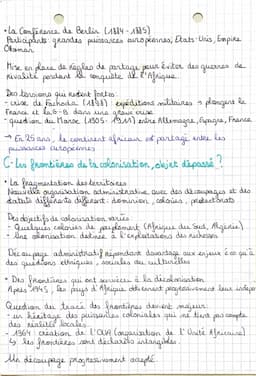 • La Conférence de Berlin (1884 - 1885)
Participants : grandes puissances européennes, Etats-Unis, Empire
Ottoman
Mise en place de règles de partage pour éviter des guerres de
rivalité pendant la conquête de l'Afrique.
Des tensions qui restent fortes :
- crise de Fachoda (1898) : expéditions militaires → plongent la
France et le R-U dans une grave crise
- question du Maroc (1905 - 1911) entre Allemagne, Espagne, France
→ En 25 ans, le continent africain est partagé entre les
puissances européennes
C- Les frontières de la colonisation, objet dépassé ?
• La fragmentation des territoires
Nouvelle organisation administrative avec des découpages et des
statuts différents : dominion, colonies, protectorats
Des objectifs de colonisation variés
- Quelques colonies de peuplement (Afrique du Sud, Algérie)
- Une colonisation destinée à l'exploitation des richesses
Découpage administratif répondant davantage aux enjeux éco qu'à
des questions ethniques, sociales ou culturelles
• Des frontières qui ont survécues à la décolonisation
Après 1945, les pays d'Afrique obtiennent progressivement leur indép
Question du tracé des frontières devient majeur :
- un héritage des puissances coloniales qui ne tient pas compte
des réalités locales
- 1964 : création de l'OUA (organisation de l'Unité Africaine)
↳ les frontières sont déclarées intangibles.
Un découpage progressivement accepté.